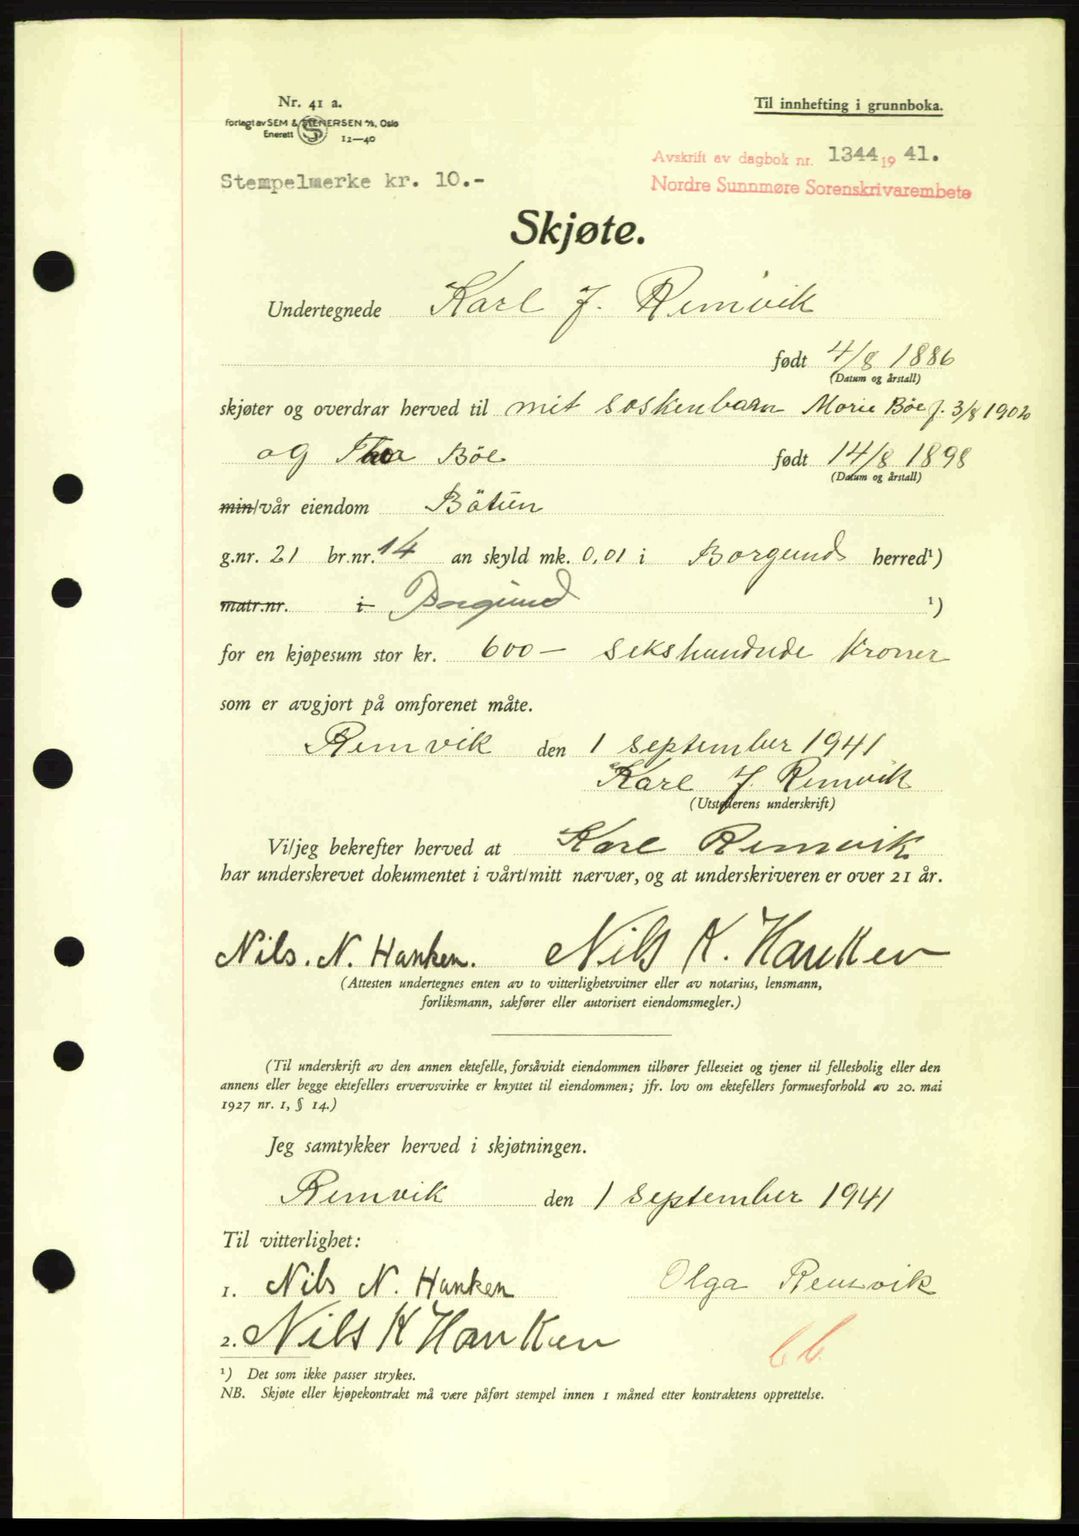 Nr. 41 a.
Forlagt av SEM & STENERSEN A/S, Oslo
Enerett 12—40
Til innhefting i grunnboka.
Avskrift av dagbok nr. 1344 19 41.
Nordre Sunnmøre Sorenskrivarembete
Stempelmerke kr. 10.-
Skjøte.
Undertegnede Karl J. Remvik
født 4/8 1886
(Datum og årstall)
skjøter og overdrar herved til mit søskenbarn Marie Böe f. 3/8 1902
og Thor Böe født 14/8 1898
(Datum og årstall)
min/vår eiendom Bötun
g.nr. 21 br.nr. 14 an skyld mk. 0,01 i Borgund herred¹)
matr.nr. i Borgund ¹)
for en kjøpesum stor kr. 600— sekshundrede kroner
som er avgjort på omforenet måte.
Remvik den 1 september 1941
Karl J. Remvik
(Utstederens underskrift)
Vi/jeg bekrefter herved at Karl Remvik
har underskrevet dokumentet i vårt/mitt nærvær, og at underskriveren er over 21 år.
Nils. N. Hanken. Nils K. Hanken
(Attesten undertegnes enten av to vitterlighetsvitner eller av notarius, lensmann,
forliksmann, sakfører eller autorisert eiendomsmegler.)
(Til underskrift av den annen ektefelle, forsåvidt eiendommen tilhører felleseiet og tjener til fellesbolig eller den
annens eller begge ektefellers ervervsvirke er knyttet til eiendommen; jfr. lov om ektefellers formuesforhold av 20. mai
1927 nr. 1, § 14.)
Jeg samtykker herved i skjøtningen.
Remvik den 1 september 1941
Til vitterlighet:
1. Nils N. Hanken Olga Remvik
2. Nils K Hanken
¹) Det som ikke passer strykes.
NB. Skjøte eller kjøpekontrakt må være påført stempel innen 1 måned etter kontraktens opprettelse.